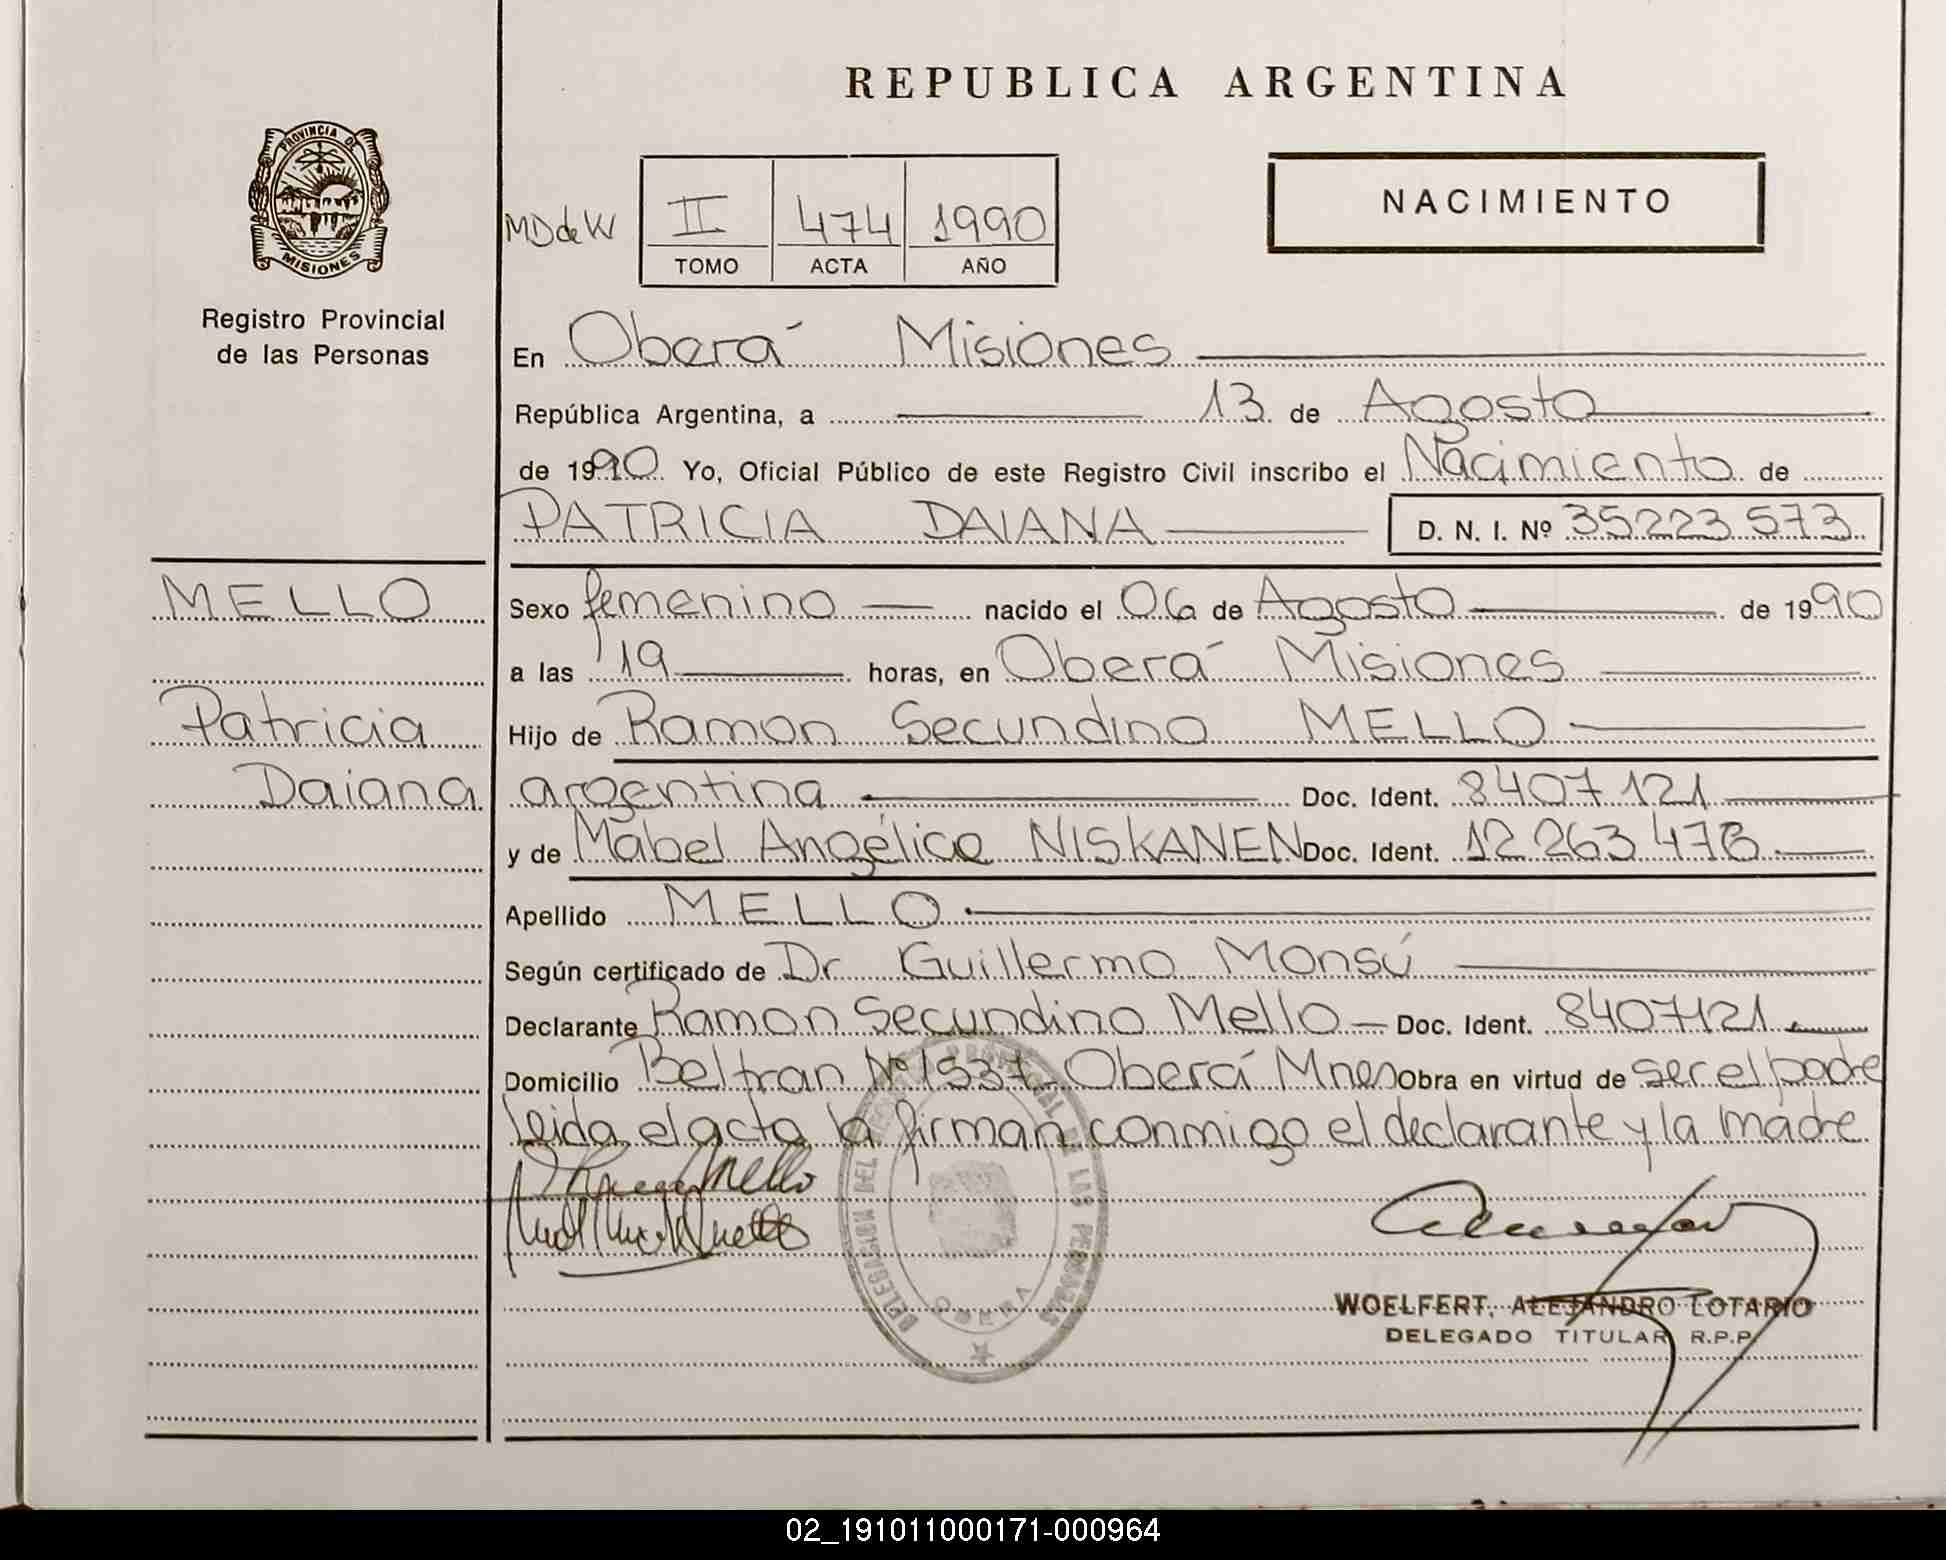 REPUBLICA ARGENTINA
PROVINCIA DE
MISIONES
Registro Provincial
de las Personas
NACIMIENTO
MD de W
II 474 1990
TOMO ACTA AÑO
En Oberá Misiones
República Argentina, a 13 de Agosto
de 1990 Yo, Oficial Público de este Registro Civil inscribo el Nacimiento de
PATRICIA DAIANA D. N. I. Nº 35223573
MELLO
Patricia
Daiana
Sexo femenino nacido el 06 de Agosto de 1990
a las 19 horas, en Oberá Misiones
Hijo de Ramon Secundino MELLO
argentina Doc. Ident. 8407121
y de Mabel Angélica NISKANEN Doc. Ident. 12 263 478
Apellido MELLO
Según certificado de Dr Guillermo Monsú
Declarante Ramon Secundino Mello Doc. Ident. 8407121
Domicilio Beltran Nº 1537 Oberá Mnes Obra en virtud de ser el padre
Leida el acta la firman conmigo el declarante y la madre
Mello
DELEGACION DEL REGISTRO PROVINCIAL DE LAS PERSONAS
OBERA
WOELFERT, ALEJANDRO LOTARIO
DELEGADO TITULAR R.P.P.
02_191011000171-000964